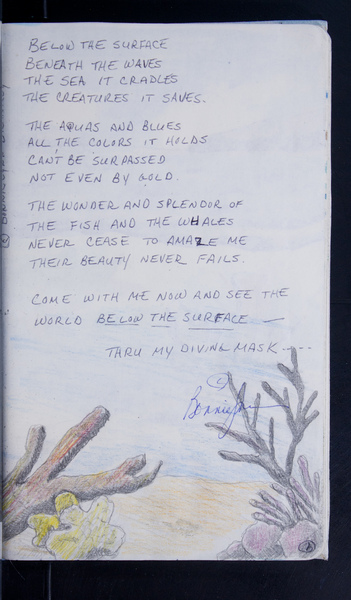 BELOW THE SURFACE
BENEATH THE WAVES
THE SEA IT CRADLES
THE CREATURES IT SAVES.
THE AQUAS AND BLUES
ALL THE COLORS IT HOLDS
CAN'T BE SURPASSED
NOT EVEN BY GOLD.
THE WONDER AND SPLENDOR OF
THE FISH AND THE WHALES
NEVER CEASE TO AMAZE ME
THEIR BEAUTY NEVER FAILS.
COME WITH ME NOW AND SEE THE
WORLD BELOW THE SURFACE —
THRU MY DIVING MASK.....
©